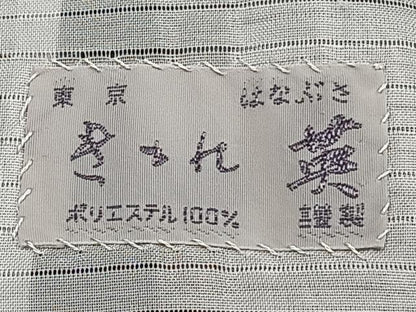 東京 はなぶさ
英
ポリエステル100% 謹製